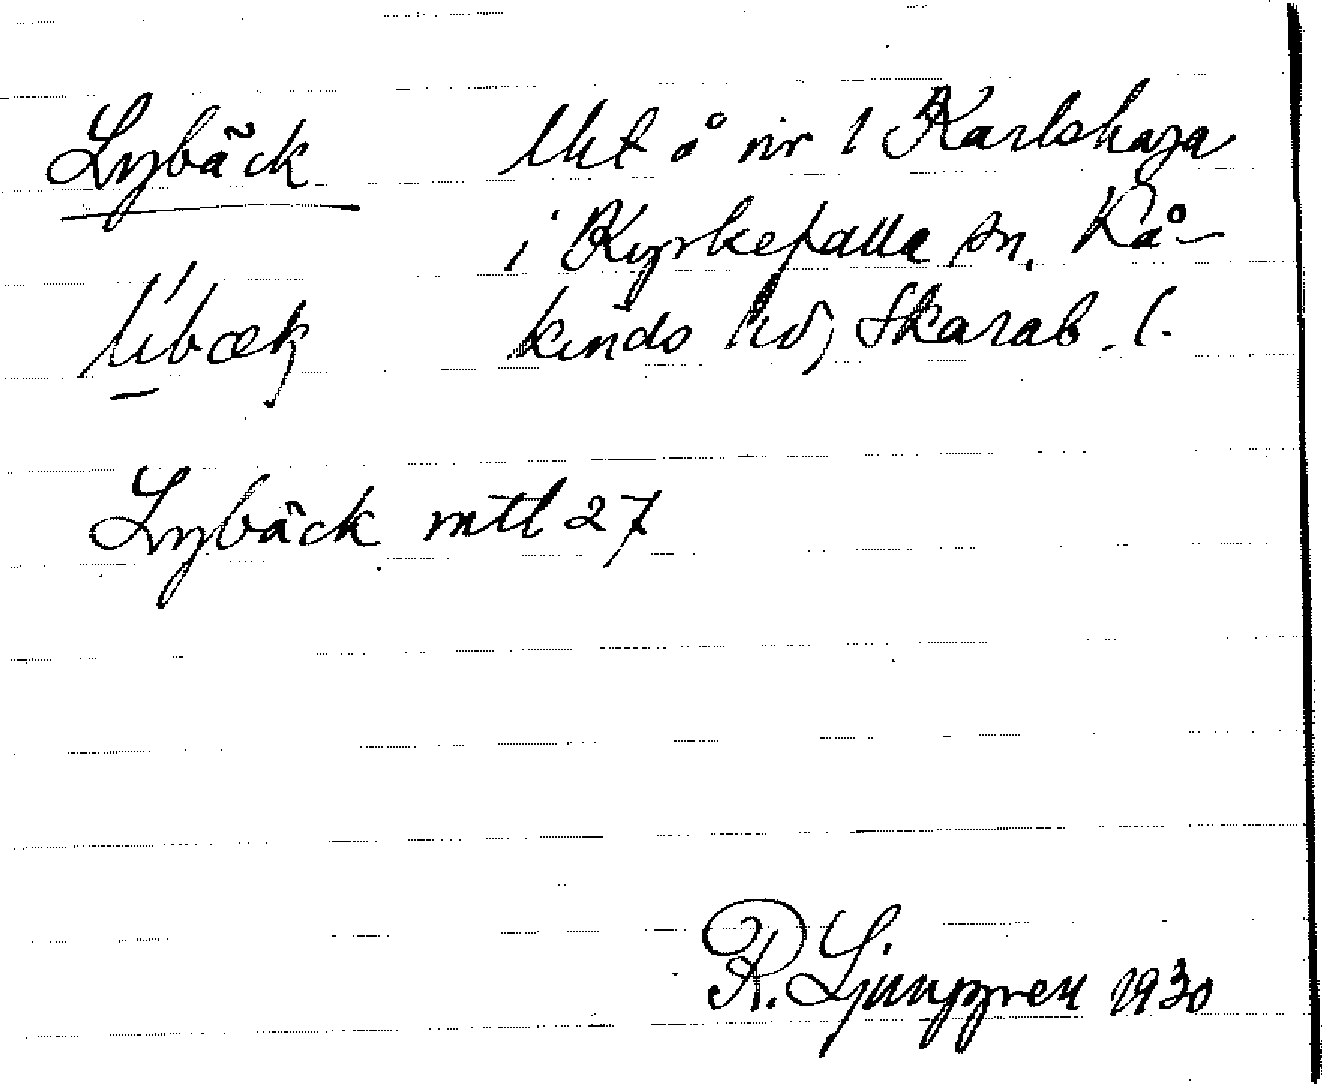 Lybäck
lht å nr 1 Karlshaga
i Kyrkefalla sn. Kå-
kinds hd, Skarab. l.
líbæk
Lybäck mtl 27
R. Ljunggren 1930